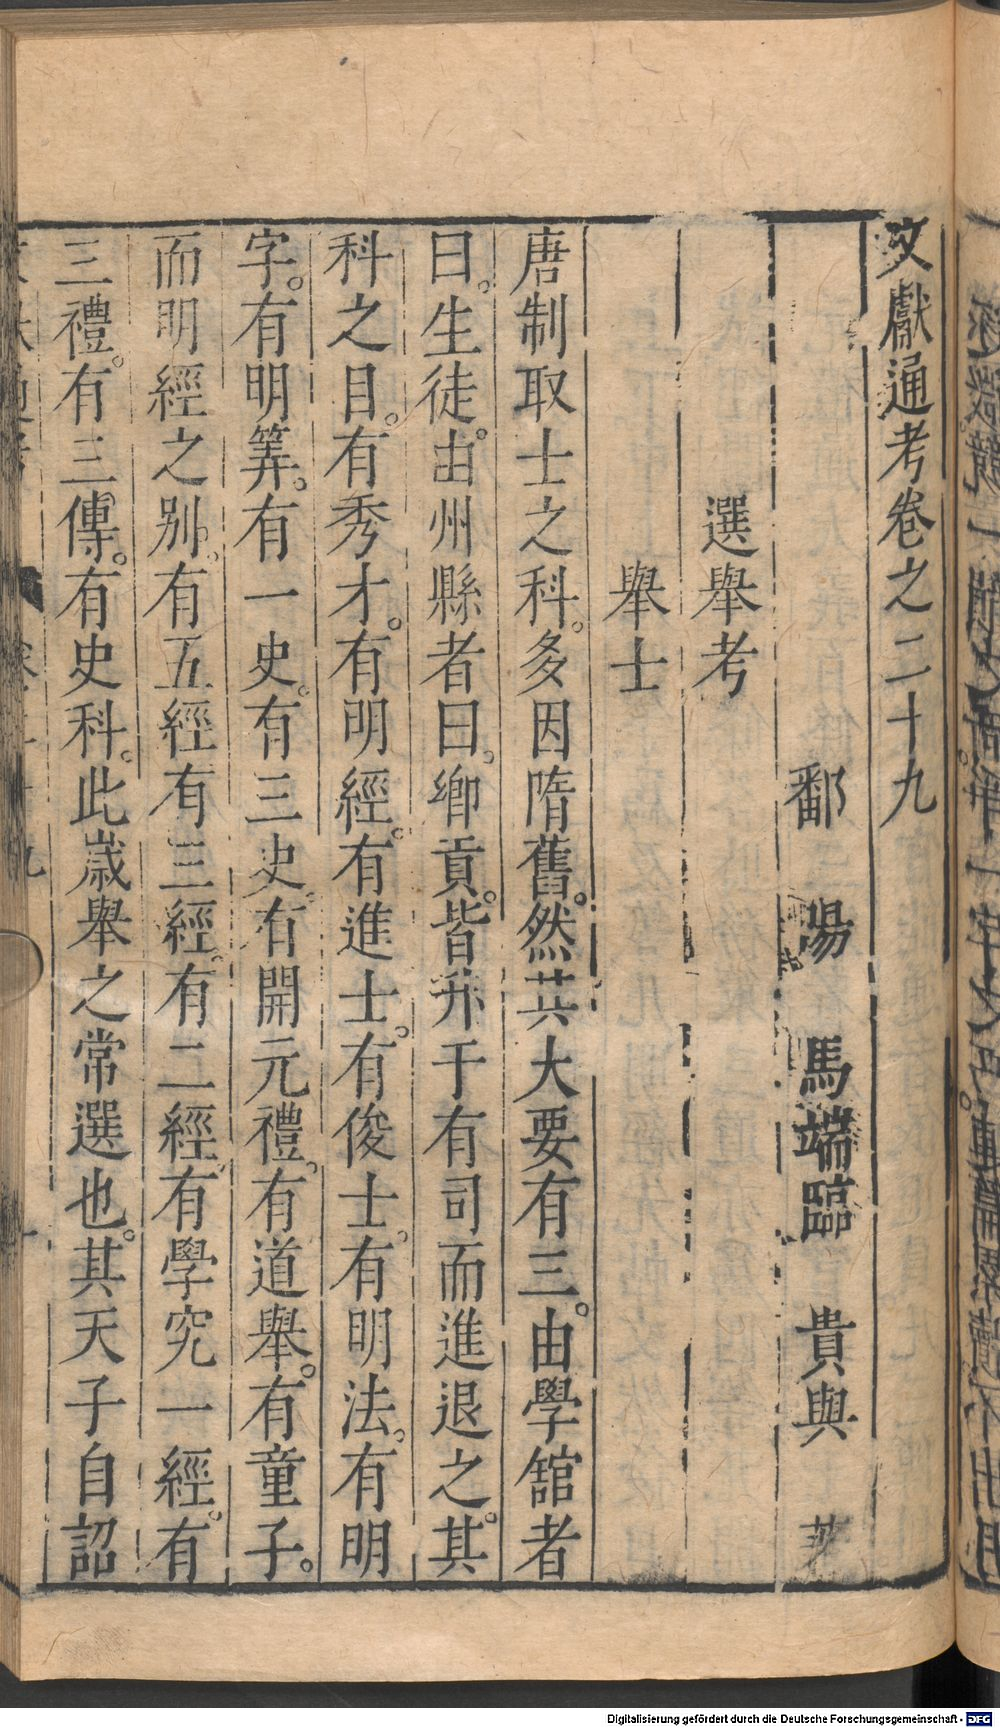 文獻通考卷之二十九
鄱陽馬端臨貴與
選舉考
舉士
唐制取士之科。多因隋舊。然其大要有三。由學舘者
曰。生徒。由州縣者曰。鄉貢。皆升于有司而進退之。其
科之目。有秀才。有明經。有進士。有俊士。有明法。有明
字。有明筭。有一史。有三史。有開元禮。有道舉。有童子。
而明經之别。有五經有三經。有二經有學究一經。有
三禮。有三傳。有史科。此歲舉之常選也。其天子自詔
Digitalisierung gefördert durch die Deutsche Forschungsgemeinschaft - DFG